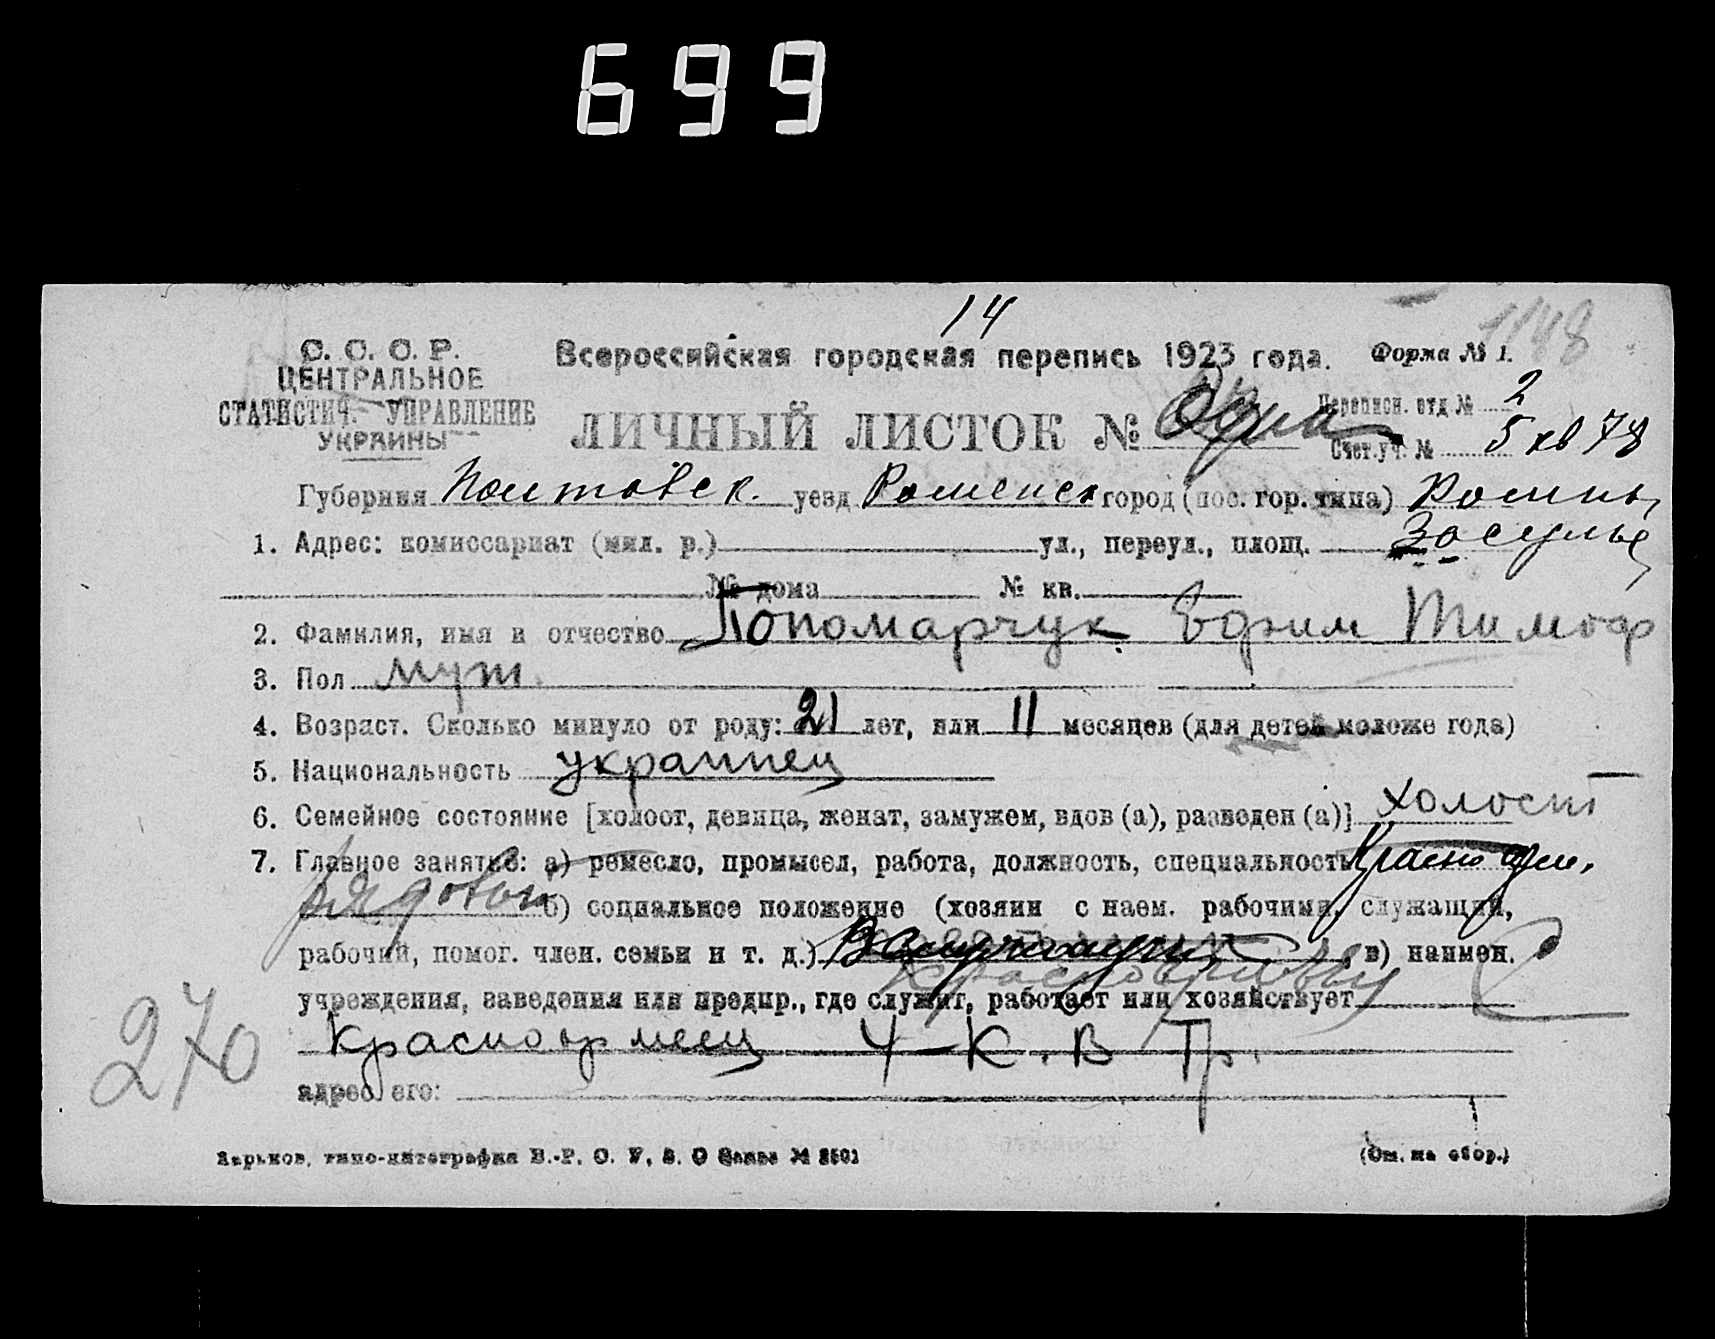 699
14
1148
С. С. С. Р.
ЦЕНТРАЛЬНОЕ
СТАТИСТИЧ. УПРАВЛЕНИЕ
УКРАИНЫ
Всероссийская городская перепись 1923 года. Форма № 1.
ЛИЧНЫЙ ЛИСТОК №
Переписн. отд № 2
Счет. уч. № 5 кв 78
Губерния Полтавск. уезд Роменск город (пос. гор. типа) Ромны
1. Адрес: комиссариат (мил. р.) ул., переул., площ. Засулье
№ дома № кв.
2. Фамилия, имя и отчество Пономарчук Ефим Тимоф
3. Пол муж.
4. Возраст. Сколько минуло от роду: 21 лет, или 11 месяцев (для детей моложе года)
5. Национальность украинец
6. Семейное состояние [холост, девица, женат, замужем, вдов (а), разведен (а)] холост
7. Главное занятие: а) ремесло, промысел, работа, должность, специальность Красноарм.
рядовой б) социальное положение (хозяин с наем. рабочими, служащий,
рабочий, помог. член. семьи и т. д.) в) наимен.
учреждения, заведения или предпр., где служит, работает или хозяйствует
Красноармеец Ч-К. В Тр.
адрес его:
270
Харьков, типо-литография В.-Р. О. У. З. О Заказ № 2501
(См. на обор.)